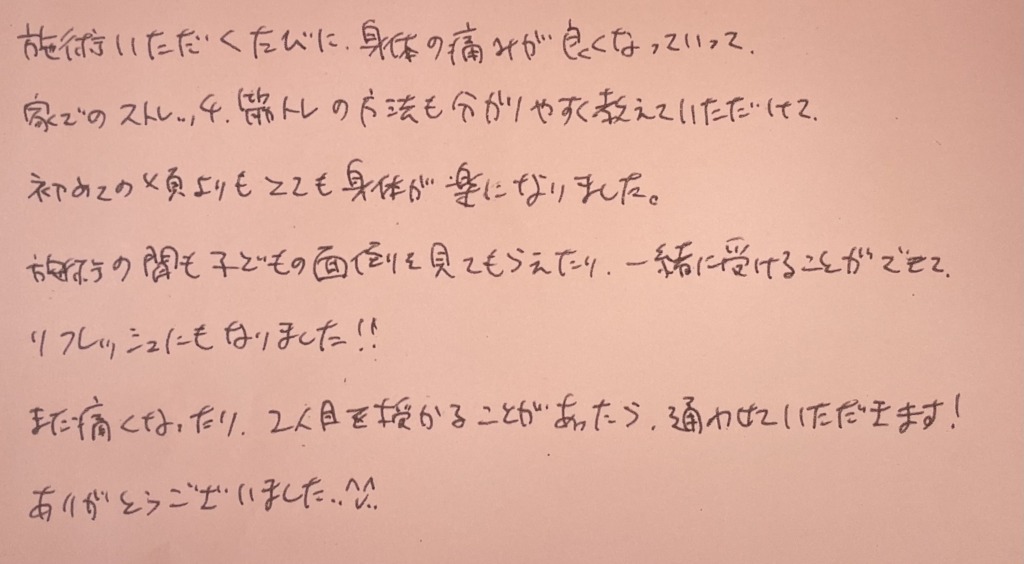 施術いただくたびに、身体の痛みが良くなっていって、
家でのストレッチ、筋トレの方法も分かりやすく教えていただけて、
初めての頃よりもとても身体が楽になりました。
施術の間も子どもの面倒を見てもらえたり、一緒に受けることができて、
リフレッシュにもなりました!!
また痛くなったり、2人目を授かることがあったら、通わせていただきます!
ありがとうございました..^^..